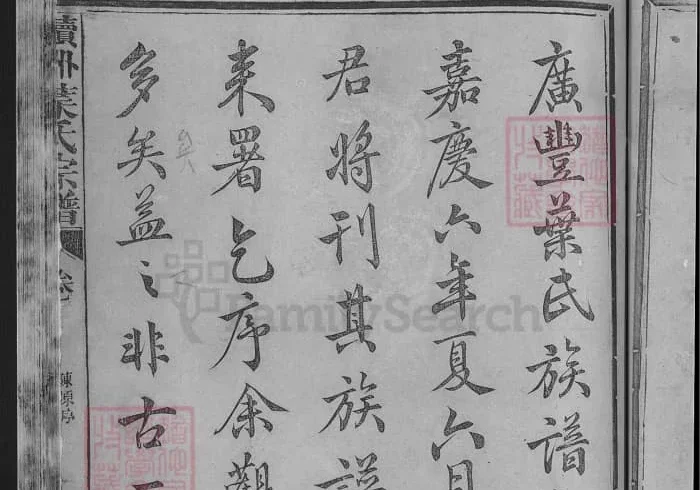 廣豐葉氏族譜
嘉慶六年夏六月
君將刊其族譜
來署乞序余觀
多矣益之非古
矣
葉氏宗譜
FamilySearch